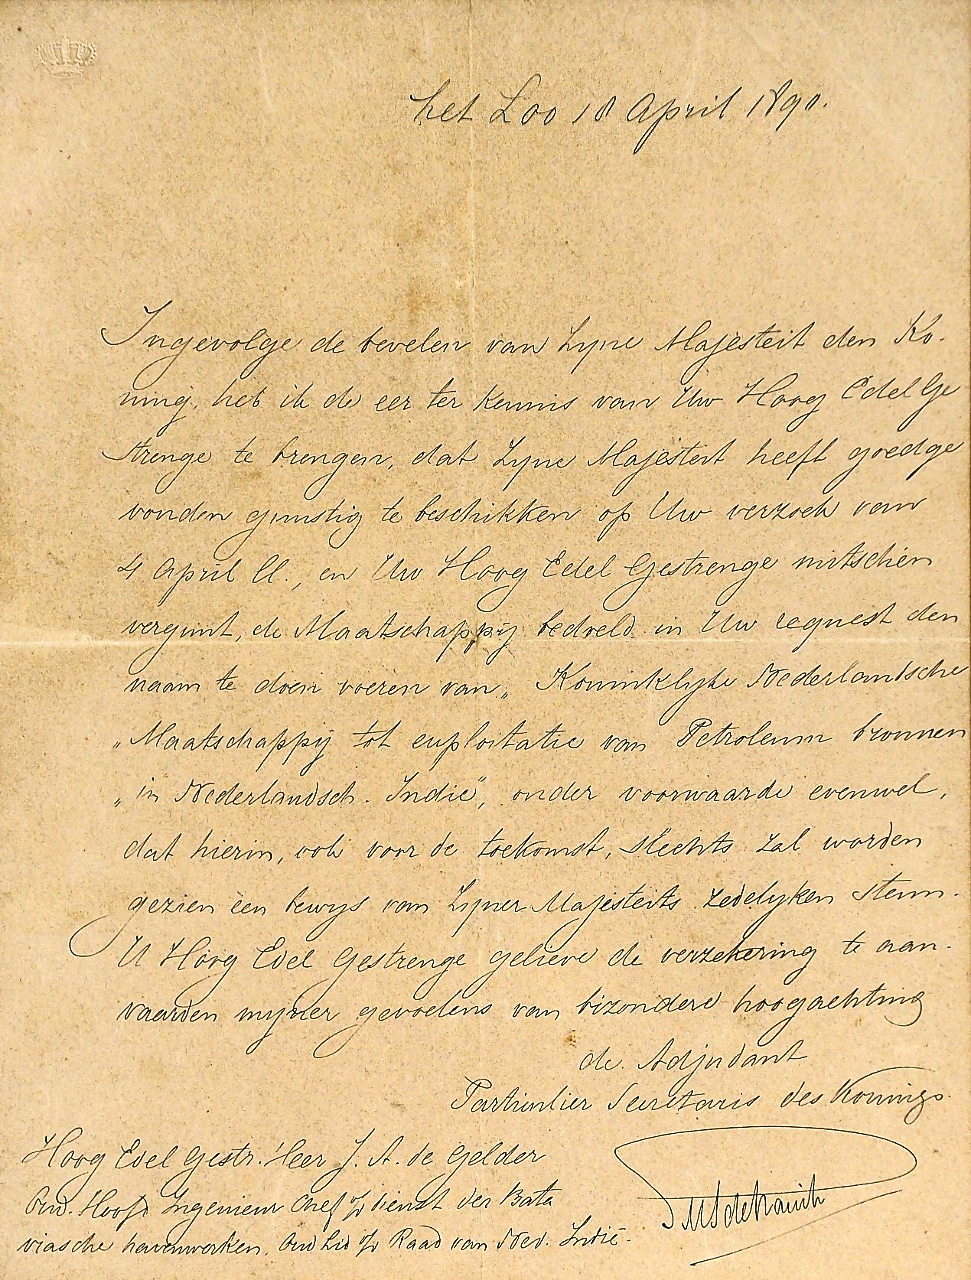 het Loo 18 April 1890.
Ingevolge de bevelen van Zyne Majesteit den Ko-
ning, heb ik de eer ter kennis van Uw Hoog Edel Ge
strenge te brengen, dat Zyne Majesteit heeft goedge
vonden gunstig te beschikken op Uw verzoek van
4 April ll., en Uw Hoog Edel Gestrenge mitsdien
vergunt, de Maatschappij bedoeld in Uw request den
naam te doen voeren van „ Koninklyke Nederlandsche
„ Maatschappij tot exploitatie van Petroleum bronnen
„ in Nederlandsch. Indië", onder voorwaarde evenwel,
dat hierin, ook voor de toekomst, slechts zal worden
gezien één bewys van Zyner Majesteits zedelyken steun.
U Hoog Edel Gestrenge gelieve de verzekering te aan-
vaarden myner gevoelens van bizondere hoogachting
de Adjudant
Particulier Secretaris des Konings.
Hoog Edel Gestr. Heer J. A. de Gelder
Oud. Hoofd Ingenieur Chef d/ dienst der Bata
viasche havenwerken, Oud Lid v/d Raad van Ned. Indië.